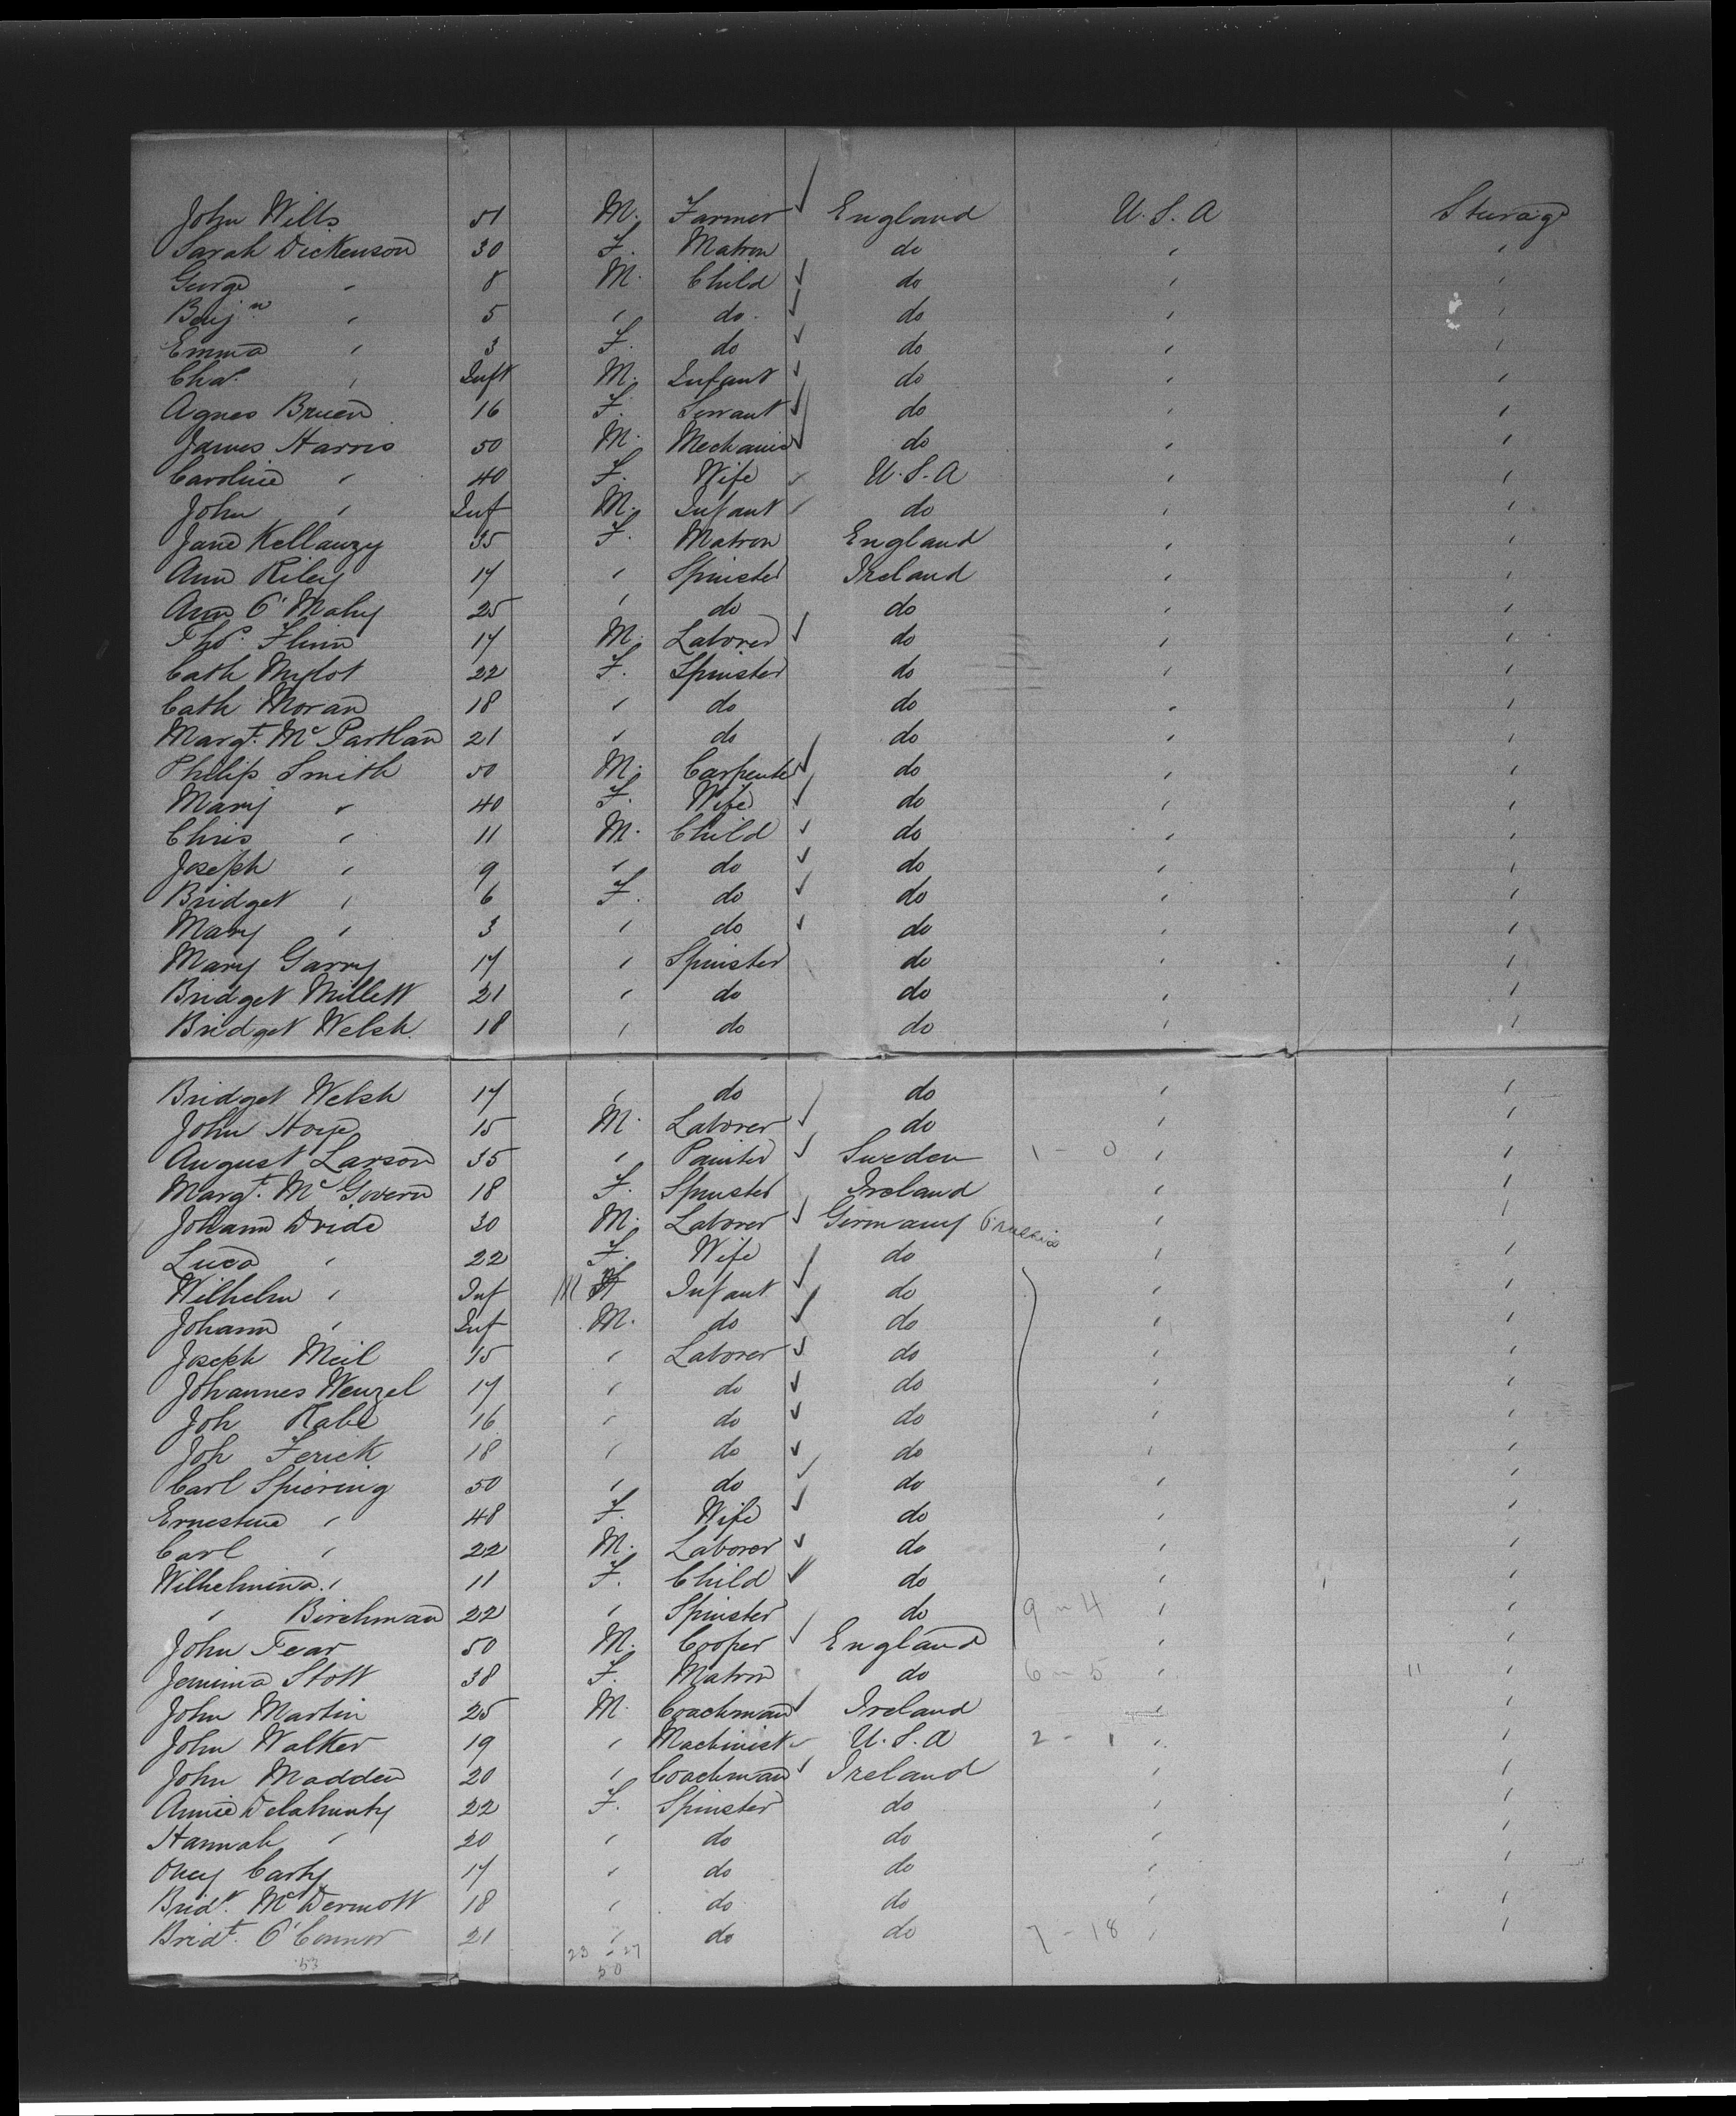 John Wills 51 M. Farmer ✓ England U.S.A Sturage
Sarah Dickenson 30 F. Matron do " "
George " 8 M. Child ✓ do " "
Benjn " 5 " do ✓ do " "
Emma " 3 F. do ✓ do " "
Chas. " Inft M. Infant ✓ do " "
Agnes Bruen 16 F. Servant ✓ do " "
James Harris 50 M. Mechanic ✓ do " "
Caroline " 40 F. Wife ✓ U.S.A " "
John " Inf M. Infant ✓ do " "
Jane 35 F. Matron England " "
Ann Riley 17 " Spinster Ireland " "
Ann O'Mahy 25 " do do " "
Thos. Flinn 17 M. Laborer ✓ do " "
Cath 22 F. Spinster do " "
Cath Moran 18 " do do " "
Margt. Mc Partlan 21 " do do " "
Philip Smith 50 M. Carpenter ✓ do " "
Mary " 40 F. Wife ✓ do " "
Chris " 11 M. Child ✓ do " "
Joseph " 9 " do ✓ do " "
Bridget " 6 F. do ✓ do " "
Mary " 3 " do ✓ do " "
Mary Garry 17 " Spinster do " "
Bridget Millett 21 " do do " "
Bridget Welsh 18 " do do " "
Bridget Welsh 17 " do do " "
John 15 M. Laborer ✓ do " "
August Larson 35 " Painter ✓ Sweden 1 - 0 " "
Margt. Mc Govern 18 F. Spinster Ireland " "
Johann Dride 30 M. Laborer ✓ Germany Prussia " "
Luca " 22 F. Wife ✓ do " "
Wilhelm " Inf M Infant ✓ do " "
Johann " Inf M. do ✓ do " "
Joseph Meil 15 " Laborer ✓ do " "
Johannes Wenzel 17 " do ✓ do " "
Joh Rabe 16 " do ✓ do " "
Joh Ferick 18 " do ✓ do " "
Carl Spiering 50 " do ✓ do " "
Ernestine " 48 F. Wife ✓ do " "
Carl " 22 M. Laborer ✓ do " "
Wilhelmina " 11 F. Child ✓ do " "
" Birchman 22 " Spinster do 9 - 4 " "
John Fear 50 M. Cooper ✓ England " "
Jemima Stott 38 F. Matron do 6 - 5 " 11 "
John Martin 25 M. Coachman ✓ Ireland " "
John Walker 19 " Machinist ✓ U.S.A 2 - 1 " "
John Madden 20 " Coachman ✓ Ireland " "
Annie Delahunty 22 F. Spinster do " "
Hannah " 20 " do do " "
Carty 17 " do do " "
Bridt. McDermott 18 " do do " "
Bridt. O'Connor 21 " do do 7 - 18 " "
53 23 - 27
50